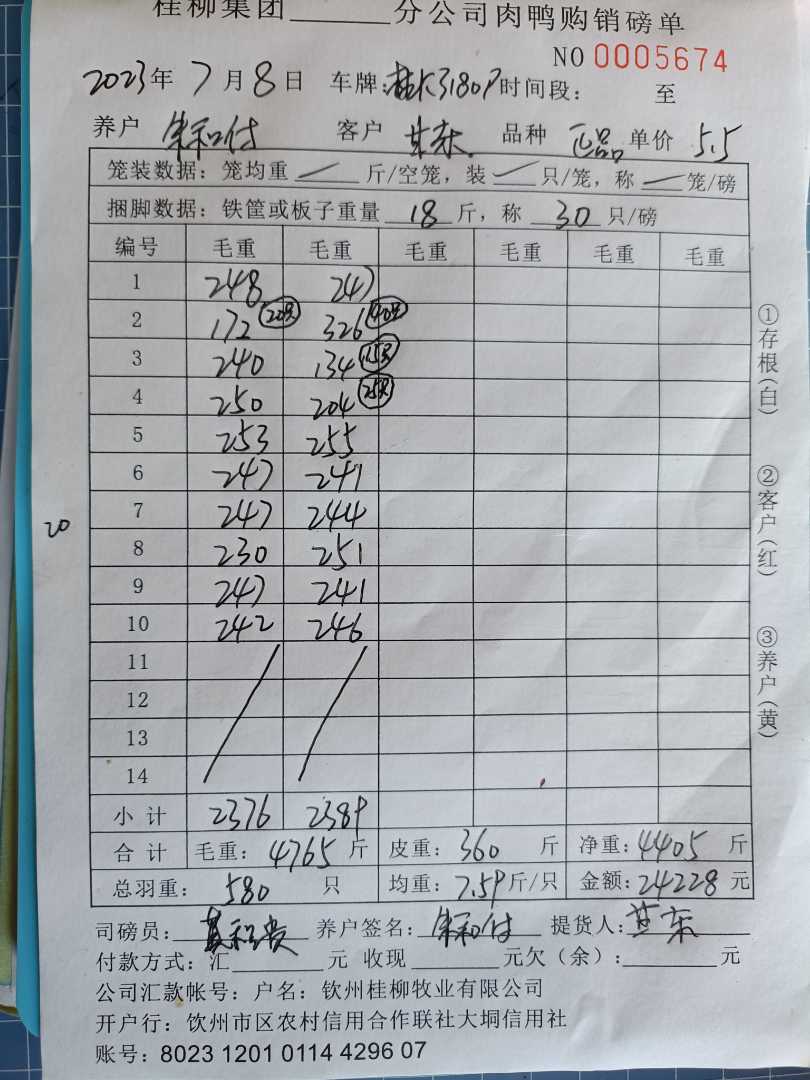 桂柳集团______分公司肉鸭购销磅单
NO 0005674
2023年 7月8日 车牌: 3180P 时间段: 至
养户 朱和付 客户 甘东 品种 正品 单价 5.5
笼装数据: 笼均重 / 斤/空笼, 装 / 只/笼, 称 / 笼/磅
捆脚数据: 铁筐或板子重量 18 斤, 称 30 只/磅
编号 毛重 毛重 毛重 毛重 毛重 毛重
1 248 247
2 172 (20只) 326 (40只)
3 240 134 (15只)
4 250 204 (25只)
5 253 255
6 247 241
7 247 244
20
8 230 251
9 247 241
10 242 246
11
12
13
14
小计 2376 2389
合计 毛重: 4765 斤 皮重: 360 斤 净重: 4405 斤
总羽重: 580 只 均重: 7.59 斤/只 金额: 24228 元
司磅员: 养户签名: 朱和付 提货人: 甘东
付款方式: 汇______元 收现______元欠(余):______元
公司汇款帐号: 户名: 钦州桂柳牧业有限公司
开户行: 钦州市区农村信用合作联社大垌信用社
账号: 8023 1201 0114 4296 07
①存根(白)
②客户(红)
③养户(黄)